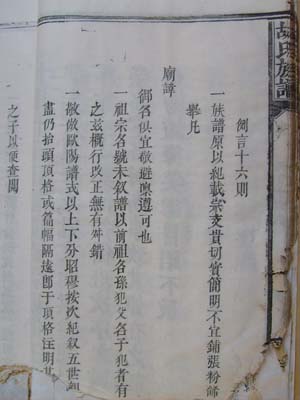 胡氏族譜
例言十六則
一族譜原以紀載宗支貴切實簡明不宜鋪張粉飾
舉凡
廟諱
御名俱宜敬避凜遵可也
一祖宗名號未叙譜以前祖名孫犯父名子犯者有
之茲概行改正無有舛錯
一敬倣歐陽譜式以上下分昭穆按次紀叙五世
盡仍抬頭頂格或篇幅隔遠卽于頂格注明某
之子以便查閱